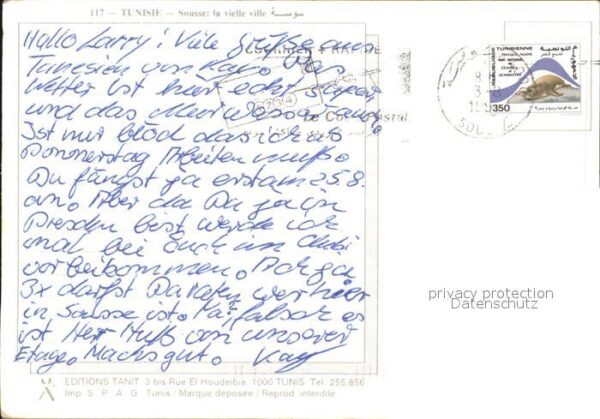 117 - TUNISIE - Sousse: la vielle ville سوسة
Hallo Larry! Viele Grüße aus
Tunesien von Kay. Das
Wetter ist hier echt super
und das Meerwasser auch
Ist nur blöd das ich ab
Donnerstag Arbeiten muß.
Du fängst ja erst am 25.8.
an. Aber da Du ja in
Dresden bist werde ich
mal bei Euch im Club
vorbeikommen.
3x darfst Du raten wer hier
in Sousse ist. falsch es
ist Herr Muß von unserer
Etage. Machs gut. Kay
TUNISIENNE
350
privacy protection
Datenschutz
EDITIONS TANIT. 3 bis Rue El Houdeibia 1000 TUNIS Tel. 255.856
Imp. S P A G Tunis / Marque déposée / Reprod. interdite